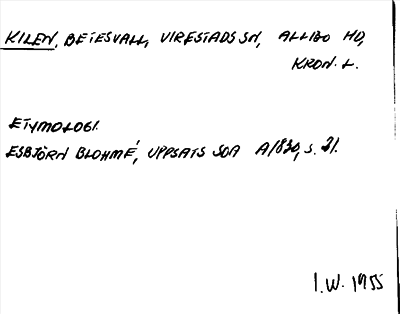 KILEN, BETESVALL, VIRESTADS SN, ALLBO HD,
KRON. L.
ETYMOLOGI.
ESBJÖRN BLOHMÉ, UPPSATS SOA A1830, S. 21.
I.W. 1955